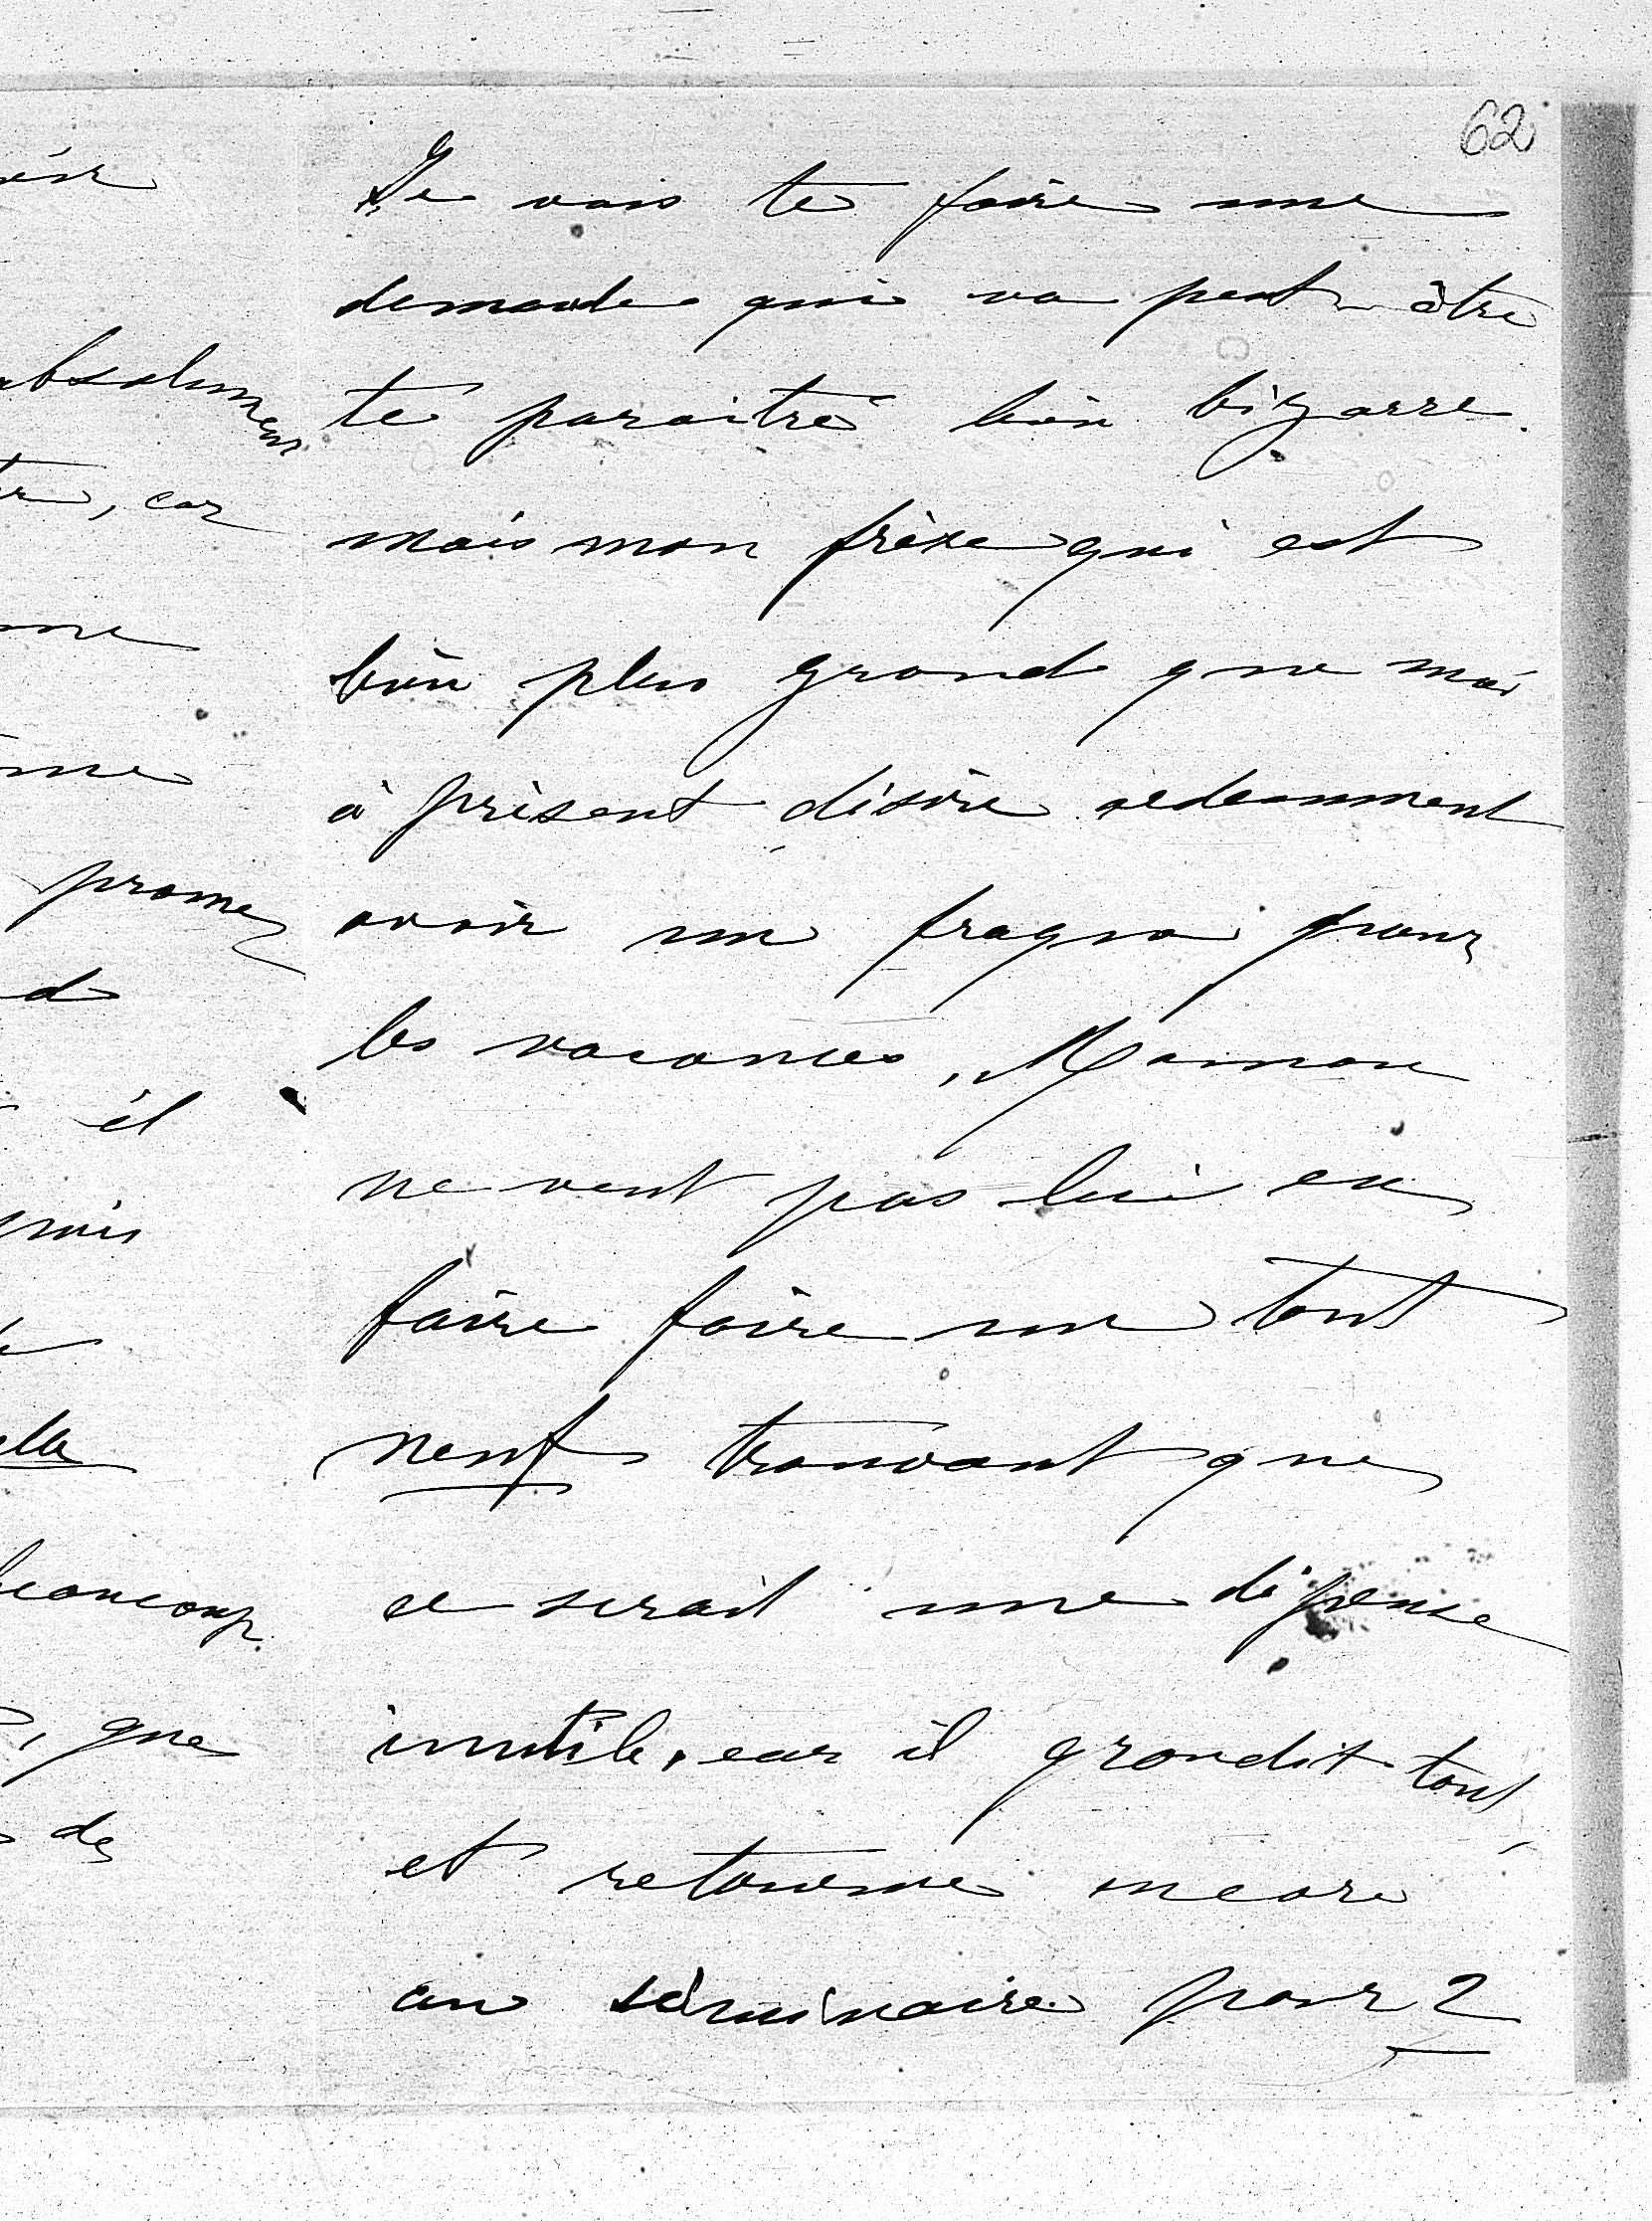 62
Je vais te faire une
demande qui va peut-être
te paraitre bien bizarre.
mais mon frère qui est
bien plus grand que moi
à présent désire
avoir un frac pour
les vacances, Maman
ne veut pas lui en
faire faire un tout
neuf trouvant que
ce serait une dépense
inutile, car il grandit tout
et retourne encore
au séminaire pour 2
oir
absolument
car
me
me
promez
d
il
puis
ela
beaucoup
, que
de